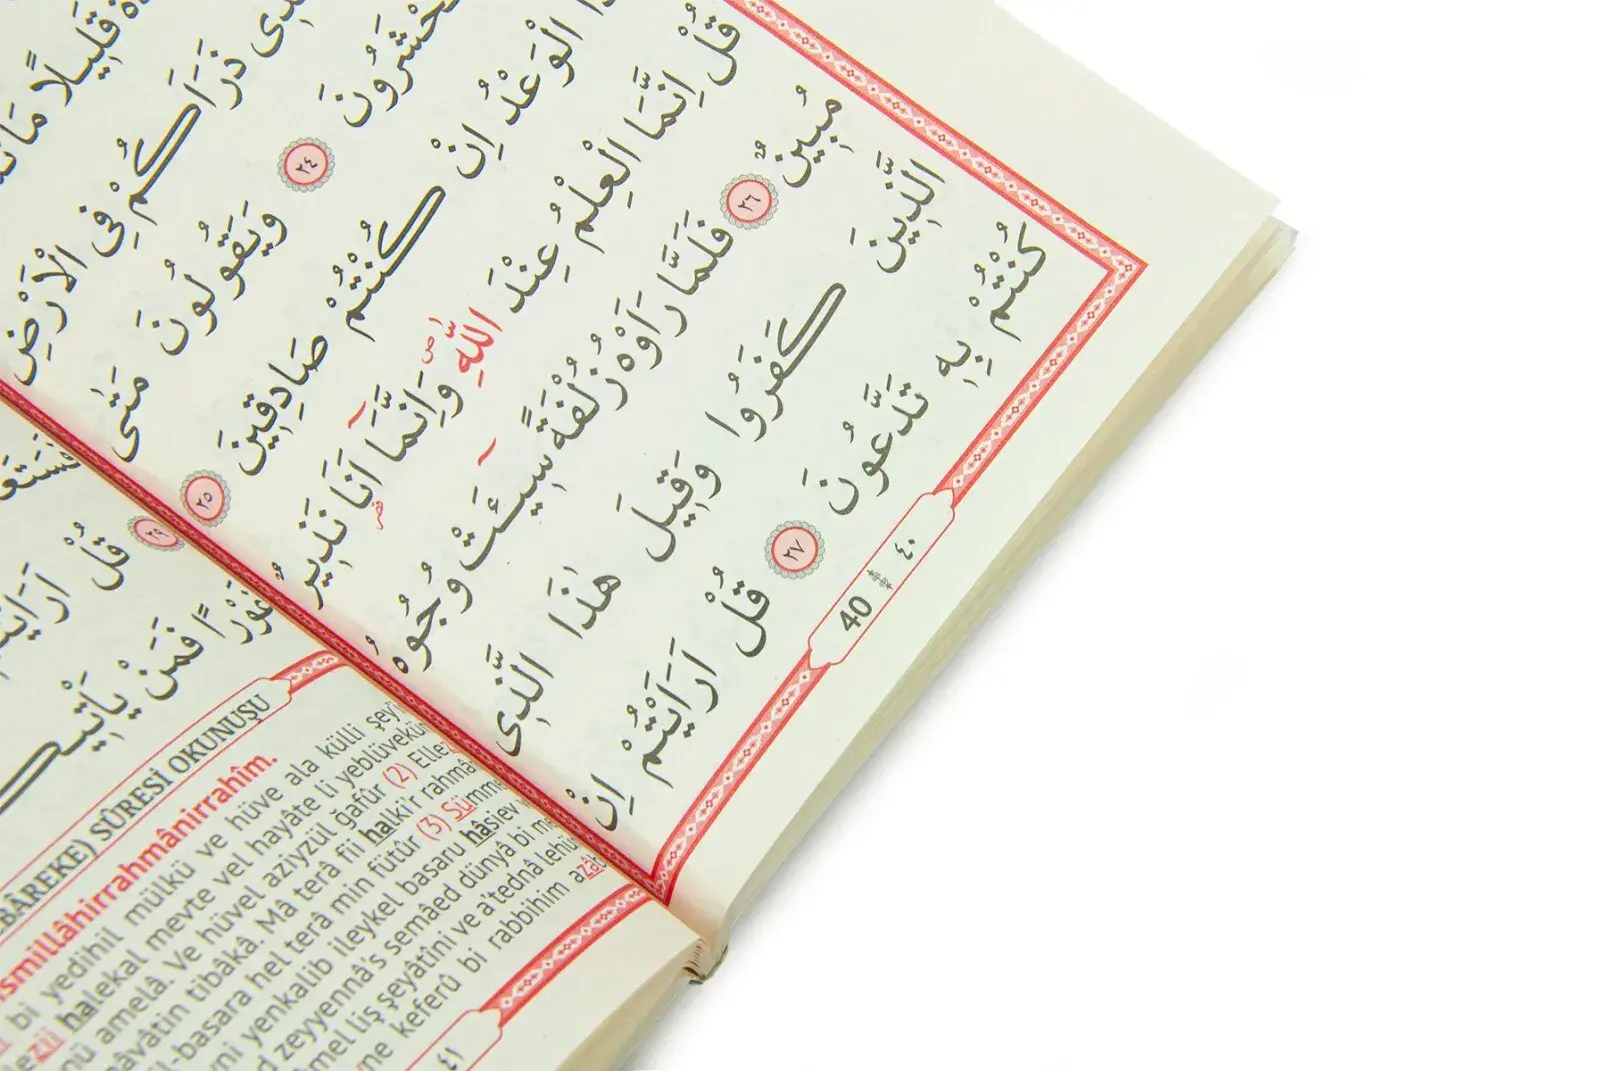 قَلِيلًا مَا
ذَرَاَكُمْ فِى الْاَرْضِ
تُحْشَرُونَ ٢٤ وَيَقُولُونَ مَتٰى
الْوَعْدُ اِنْ كُنْتُمْ صَادِقِينَ ٢٥
قُلْ اِنَّمَا الْعِلْمُ عِنْدَ اللّٰهِ وَاِنَّمَا اَنَا نَذِيرٌ
مُبِينٌ ٢٦ فَلَمَّا رَاَوْهُ زُلْفَةً سِيـَٔتْ وُجُوهُ
الَّذِينَ كَفَرُوا وَقِيلَ هٰذَا الَّذِى
كُنْتُمْ بِهِ تَدَّعُونَ ٢٧ قُلْ اَرَاَيْتُمْ اِنْ
40 ٤٠
٢٩ قُلْ
غَوْرًا فَمَنْ
BÂREKE) SÛRESİ OKUNUŞU
smillâhirrahmânirrahîm.
bi yedihil mülkü ve hüve ala külli şey'
halekal mevte vel hayâte li yeblüvekü
amelâ. Ve hüvel aziyzül ğafûr (2) Elle
tibâkâ. Mâ terâ fii halki'r rahmâ
basara hel terâ min fütûr (3) Sümm
yenkalib ileykel basaru hâsiev
zeyyenna's semâed dünyâ bi
liş şeyâtîni ve a'tednâ lehü
keferû bi rabbihim azâb
٤١